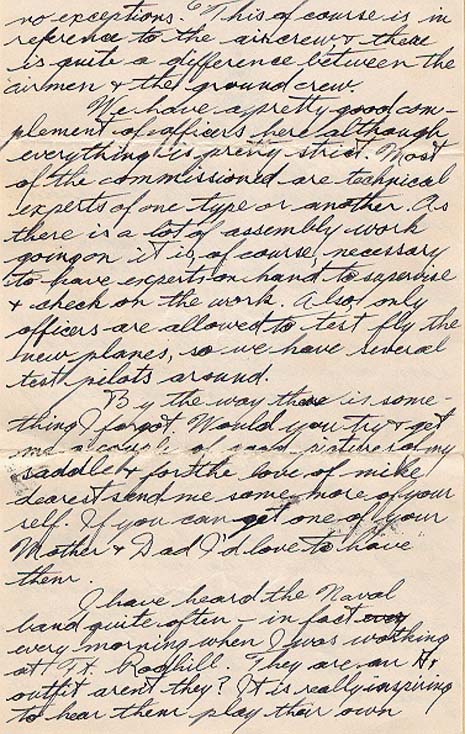 no exceptions. This of course is in
reference to the aircrew & there
is quite a difference between the
airmen & the ground crew.
We have a pretty good com-
plement of officers here although
everything is pretty strict. Most
of the commissioned are technical
experts of one type or another. As
there is a lot of assembly work
going on it is, of course, necessary
to have experts on hand to supervise
& check on the work. Also, only
officers are allowed to test fly the
new planes, so we have several
test pilots around.
By the way there is some-
thing I forgot. Would you try & get
me a couple of good pictures of my
saddle & for the love of mike
dearest send me some more of your
self. If you can get one of your
Mother & Dad I'd love to have
them.
I have heard the Naval
band quite often - in fact
every morning when I was working
at Ft. They are an
outfit aren't they? It is really inspiring
to hear them play their own